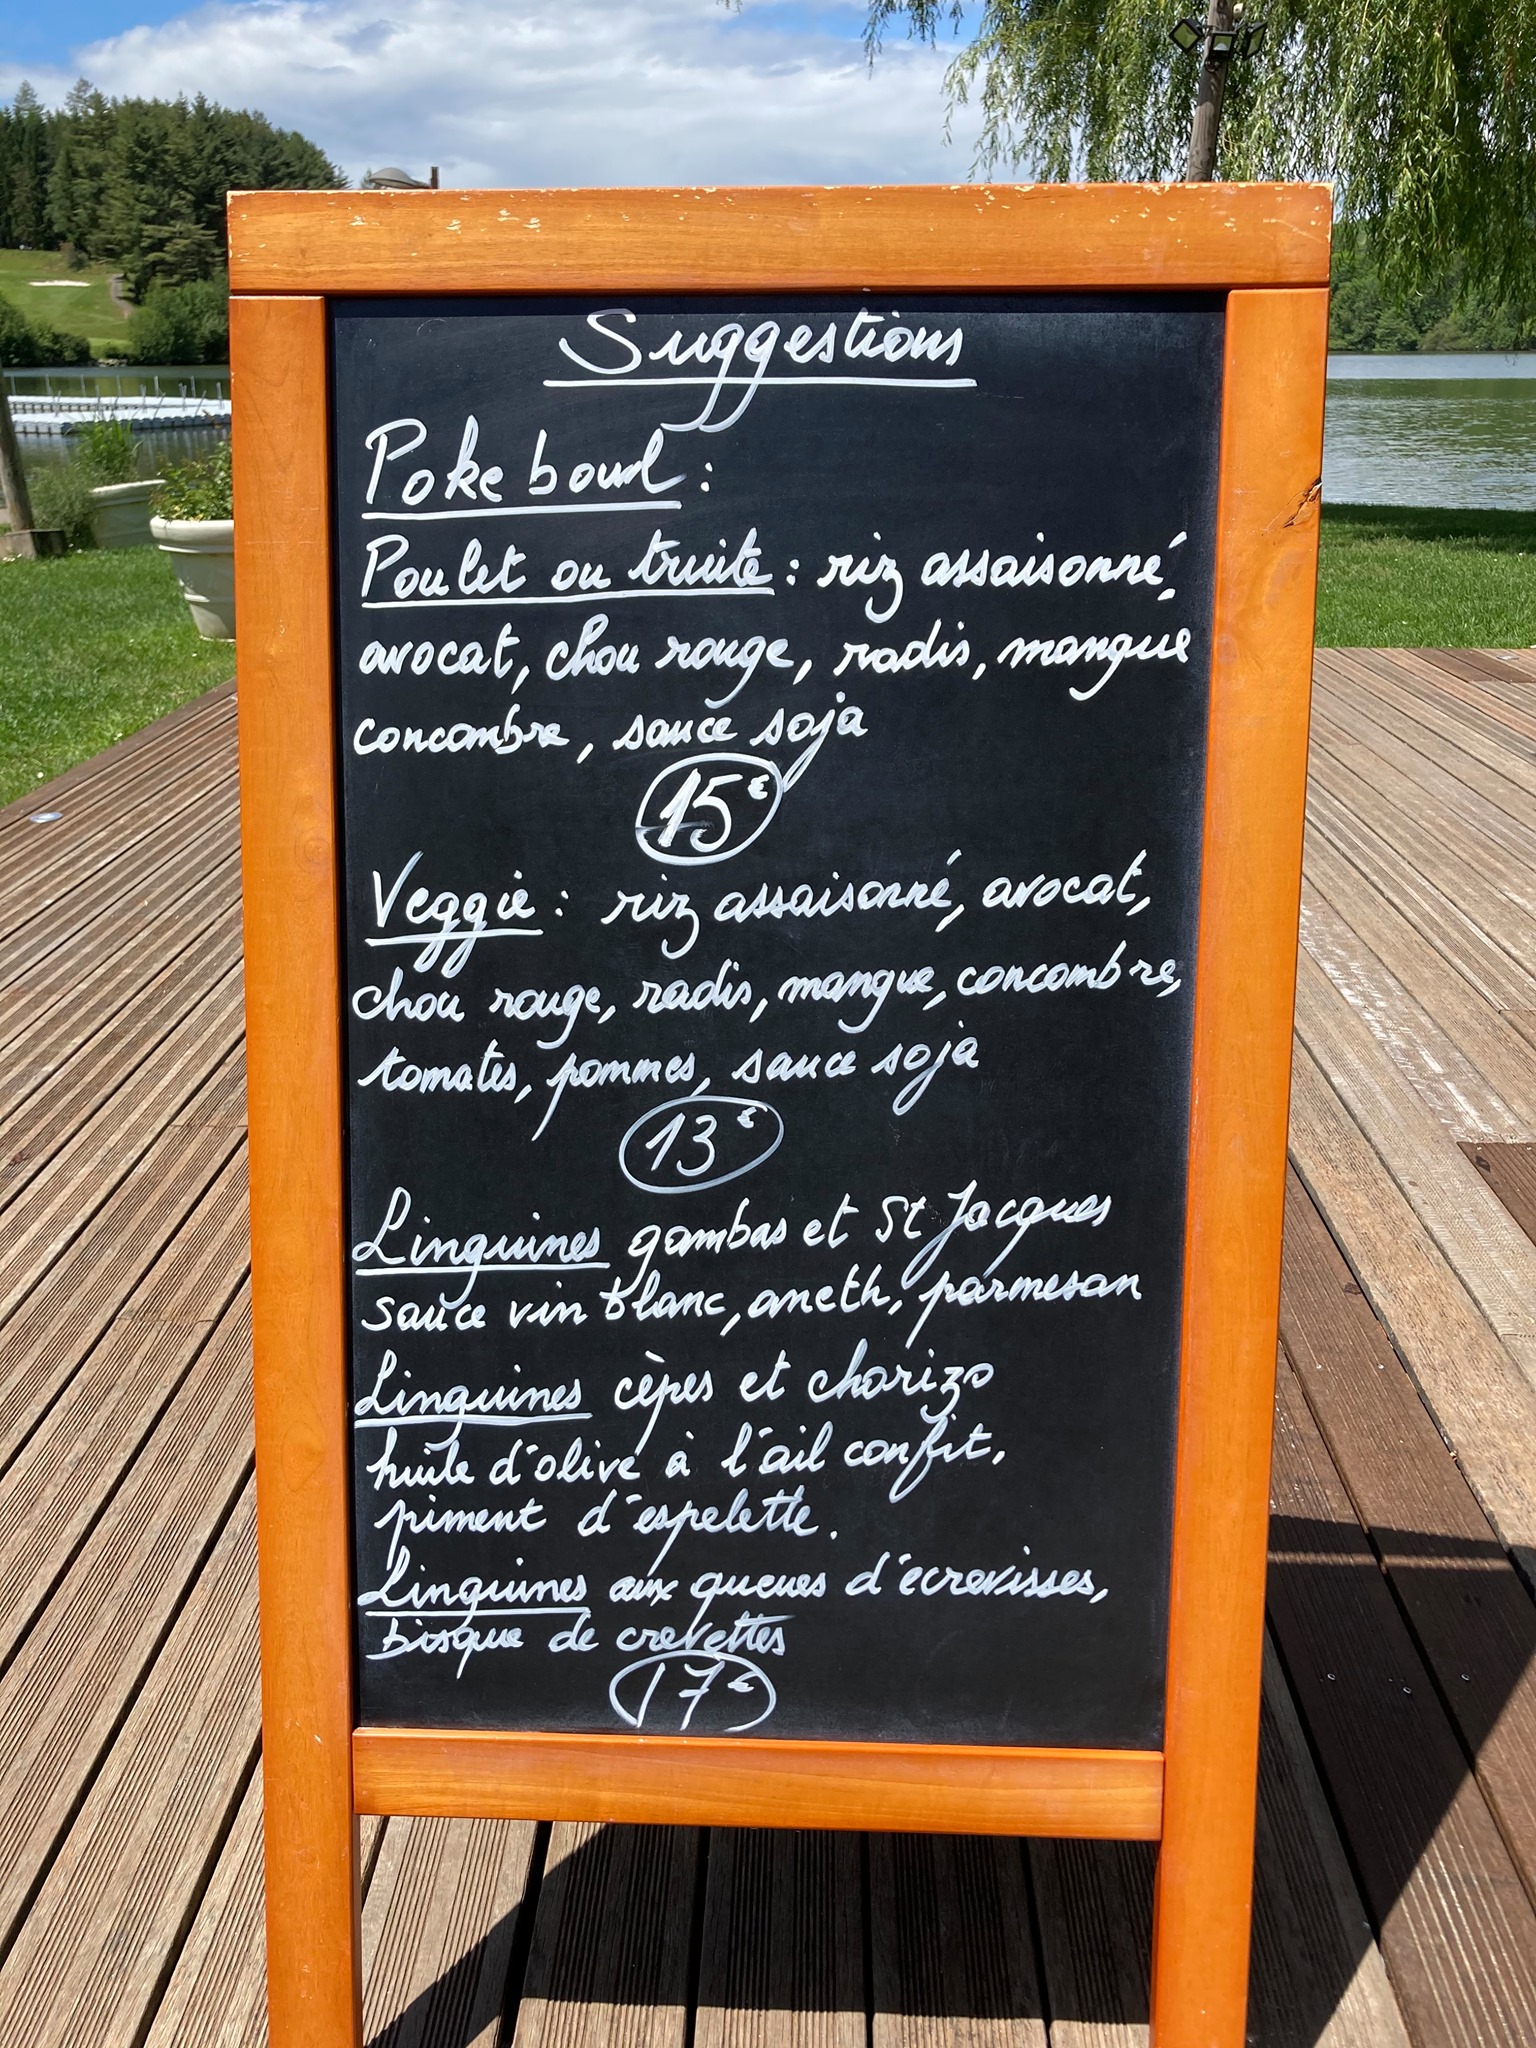 Suggestions
Poke bowl :
Poulet ou truite : riz assaisonné,
avocat, chou rouge, radis, mangue
concombre, sauce soja
15€
Veggie : riz assaisonné, avocat,
chou rouge, radis, mangue, concombre,
tomates, pommes, sauce soja
13€
Linguines gambas et St Jacques
sauce vin blanc, aneth, parmesan
Linguines cèpes et chorizo
huile d'olive à l'ail confit,
piment d'espelette.
Linguines aux queues d'écrevisses,
bisque de crevettes
17€